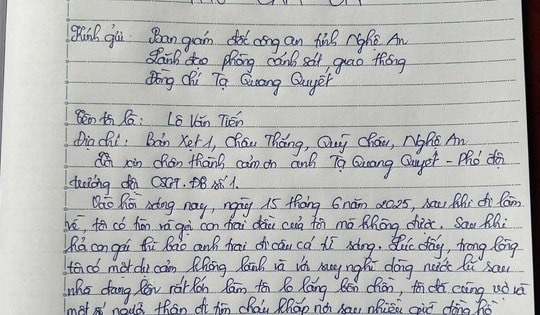 Kính gửi: Ban giám đốc công an tỉnh Nghệ An
Lãnh đạo phòng cảnh sát giao thông
Đồng chí Tạ Quang Quyết
Tên tôi là: Lê Văn Tiến
Địa chỉ: Bản Xẹt 1, Châu Thắng, Quỳ Châu, Nghệ An
Tôi xin chân thành cảm ơn anh Tạ Quang Quyết - Phó đội
trưởng đội CSGT.ĐB số 1.
Vào hồi sáng nay, ngày 15 tháng 6 năm 2025, sau khi đi làm
về, tôi có tìm và gọi con trai đầu của tôi mà không được. Sau khi
hỏi con gái thì bảo anh trai đi câu cá từ sáng. Lúc đấy, trong lòng
tôi có một dự cảm không lành và với suy nghĩ dòng nước lũ sau
nhà đang lớn rất lớn làm tôi lo lắng bồn chồn, tôi đã cùng vợ và
một số người thân đi tìm cháu khắp nơi sau nhiều giờ đồng hồ